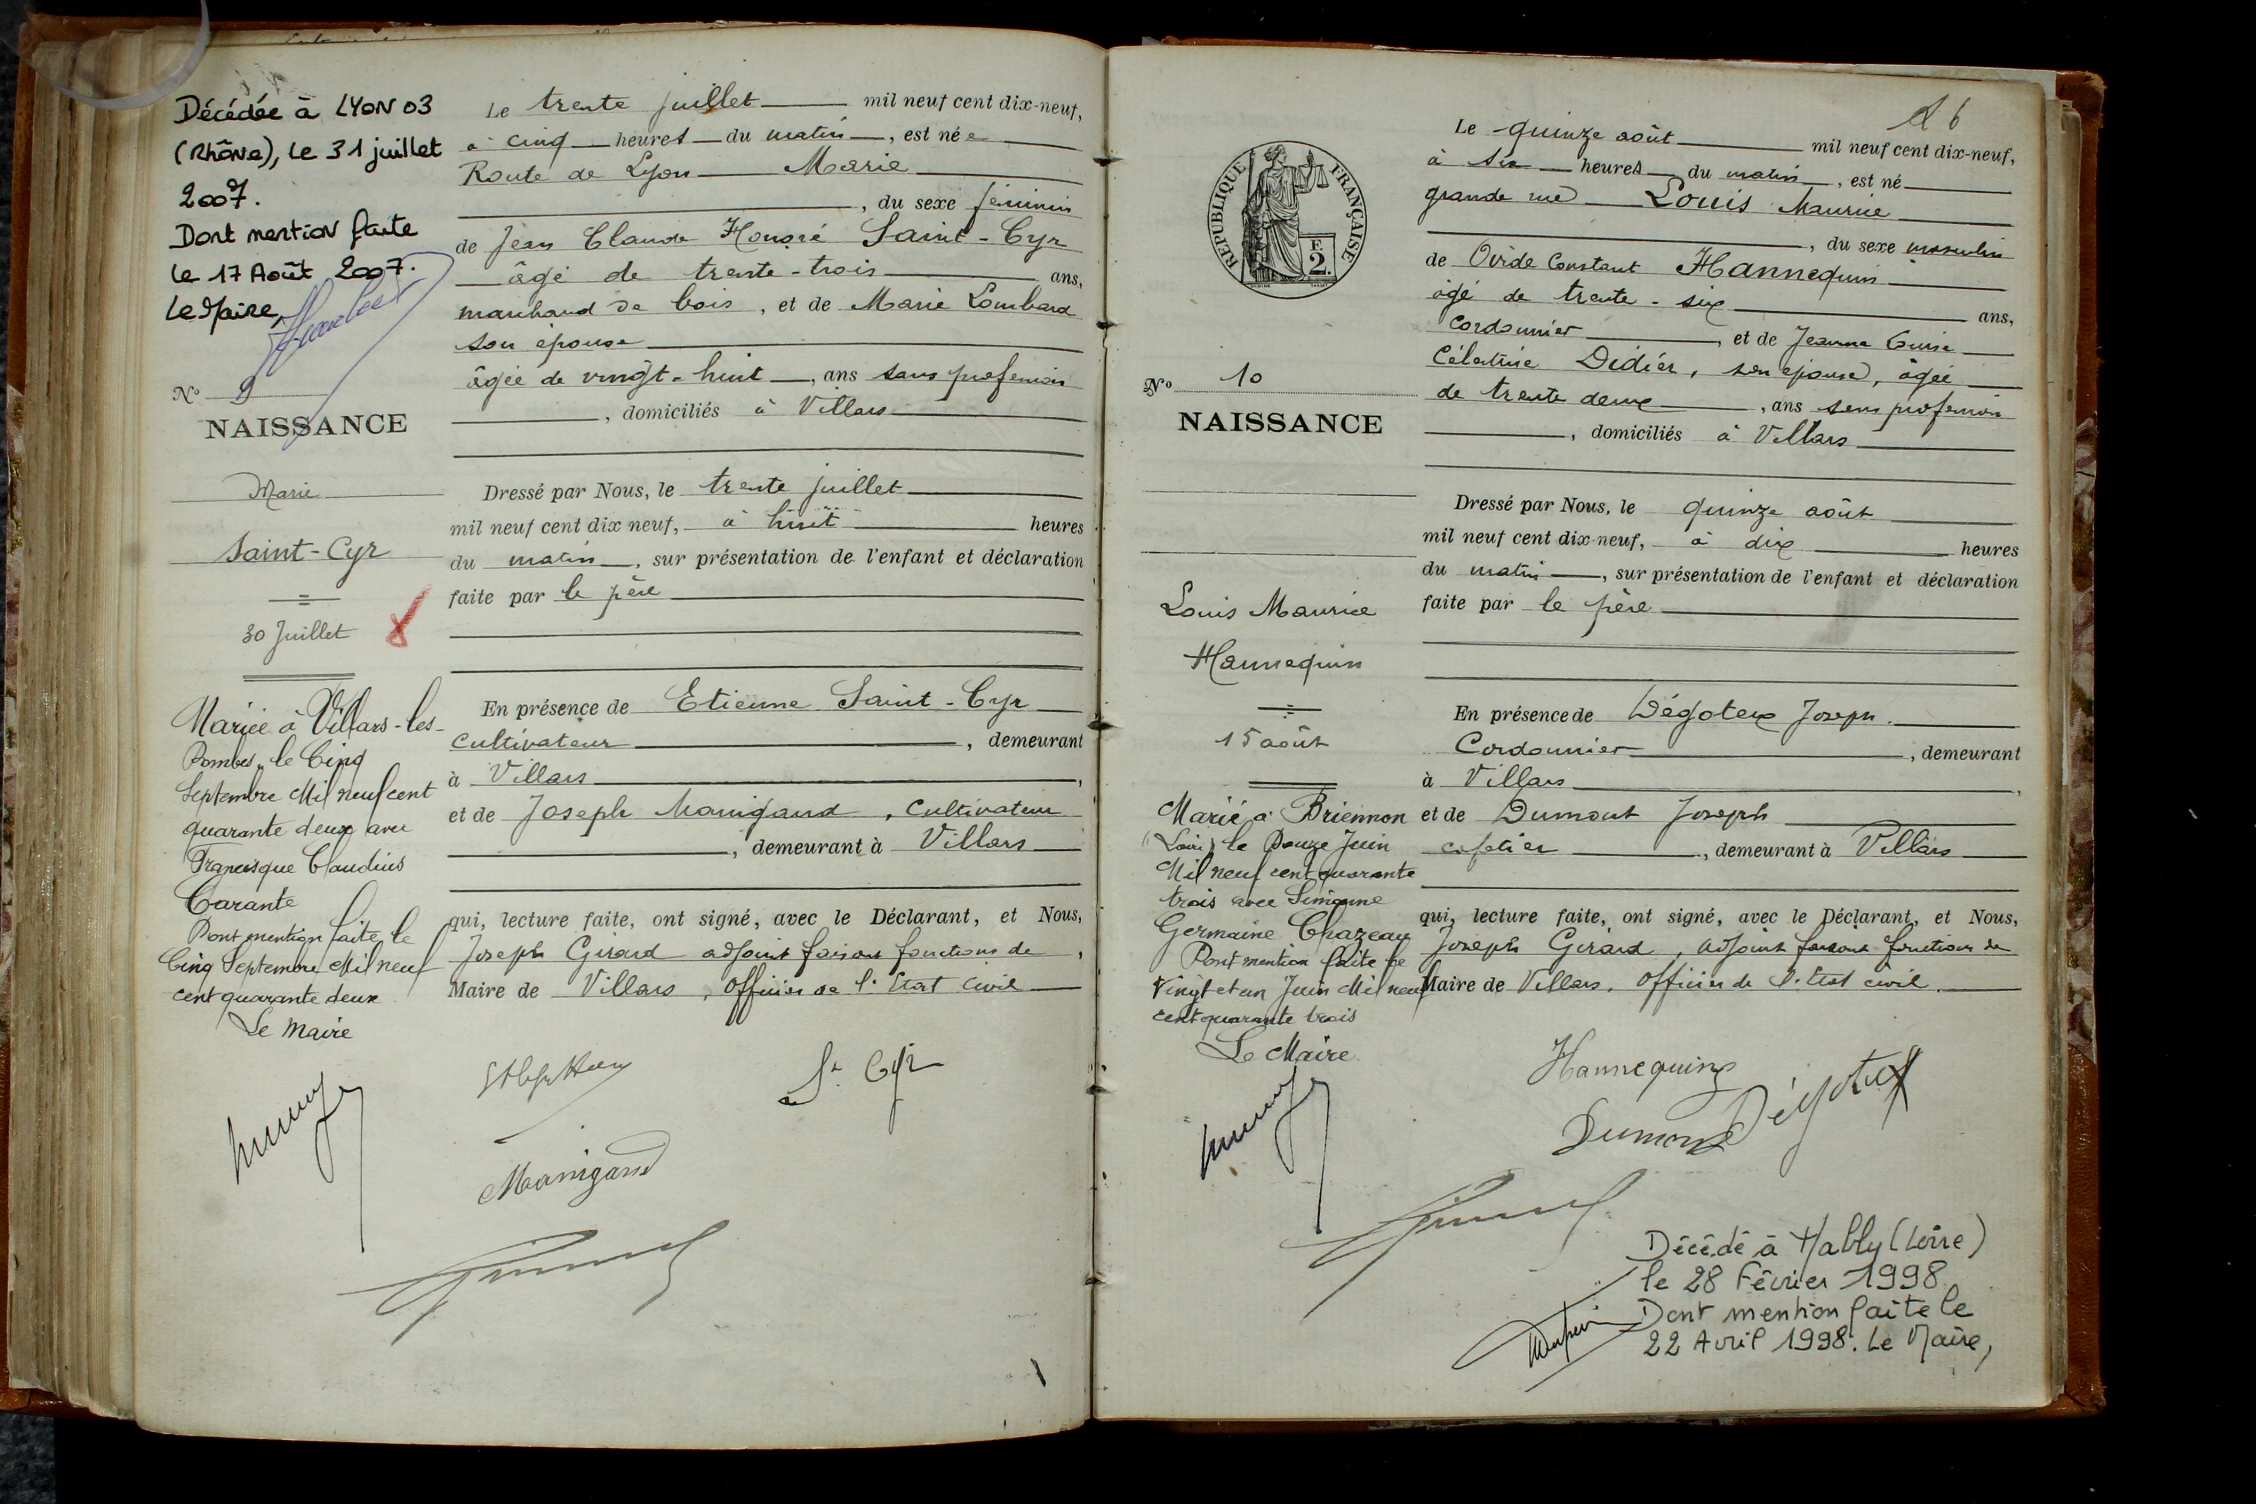 Décédée à LYON 03
(Rhône), le 31 juillet
2007.
Dont mention faite
le 17 Août 2007.
Le Maire,
N° 9
NAISSANCE
Marie
Saint-Cyr
30 Juillet
Mariée à Villars-les-
Dombes, le Cinq
Septembre Mil neuf cent
quarante deux avec
Francisque Claudius
Carante
Dont mention faite le
Cinq Septembre Mil neuf
cent quarante deux
Le Maire
Le trente juillet mil neuf cent dix-neuf,
à cinq heures du matin, est née
Route de Lyon Marie
, du sexe féminin
de Jean Claude Honoré Saint-Cyr
âgé de trente-trois ans,
marchand de bois, et de Marie Lombard
son épouse
âgée de vingt-huit, ans sans profession
, domiciliés à Villars
Dressé par Nous, le trente juillet
mil neuf cent dix neuf, à huit heures
du matin, sur présentation de l'enfant et déclaration
faite par le père
En présence de Etienne Saint-Cyr
cultivateur, demeurant
à Villars,
et de Joseph Manigand, cultivateur
, demeurant à Villars
qui, lecture faite, ont signé, avec le Déclarant, et Nous,
Joseph Girard adjoint faisant fonctions de,
Maire de Villars, officier de l'Etat civil
St Cyr
Manigand
26
REPUBLIQUE FRANÇAISE
F.
2.
N° 10
NAISSANCE
Louis Maurice
Hannequin
15 août
Marié à Briennon
(Loire) le Douze Juin
Mil neuf cent quarante
trois avec Simonne
Germaine Chazeau
Dont mention faite le
Vingt et un Juin Mil neuf
cent quarante trois
Le Maire
Le quinze août mil neuf cent dix-neuf,
à six heures du matin, est né
grande rue Louis Maurice
, du sexe masculin
de Ovide Constant Hannequin
âgé de trente-six ans,
cordonnier, et de Jeanne Louise
Célestine Didier, son épouse, âgée
de trente deux, ans sans profession
, domiciliés à Villars
Dressé par Nous, le quinze août
mil neuf cent dix-neuf, à dix heures
du matin, sur présentation de l'enfant et déclaration
faite par le père
En présence de Dégoteix Joseph.
Cordonnier, demeurant
à Villars,
et de Dumont Joseph
cafetier, demeurant à Villars
qui, lecture faite, ont signé, avec le Déclarant, et Nous,
Joseph Girard, adjoint faisant fonctions de
Maire de Villars, officier de l'Etat civil.
Hannequin
Dumont
Décédé à Mably (Loire)
le 28 Février 1998
Dont mention faite le
22 Avril 1998. Le Maire,